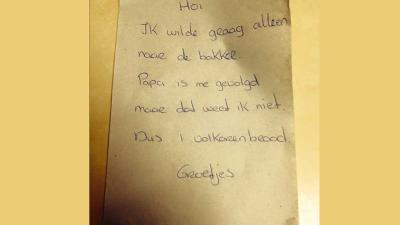 Hoi
Ik wilde graag alleen
naar de bakker.
Papa is me gevolgd
maar dat weet ik niet.
Dus 1 volkorenbrood
Groetjes